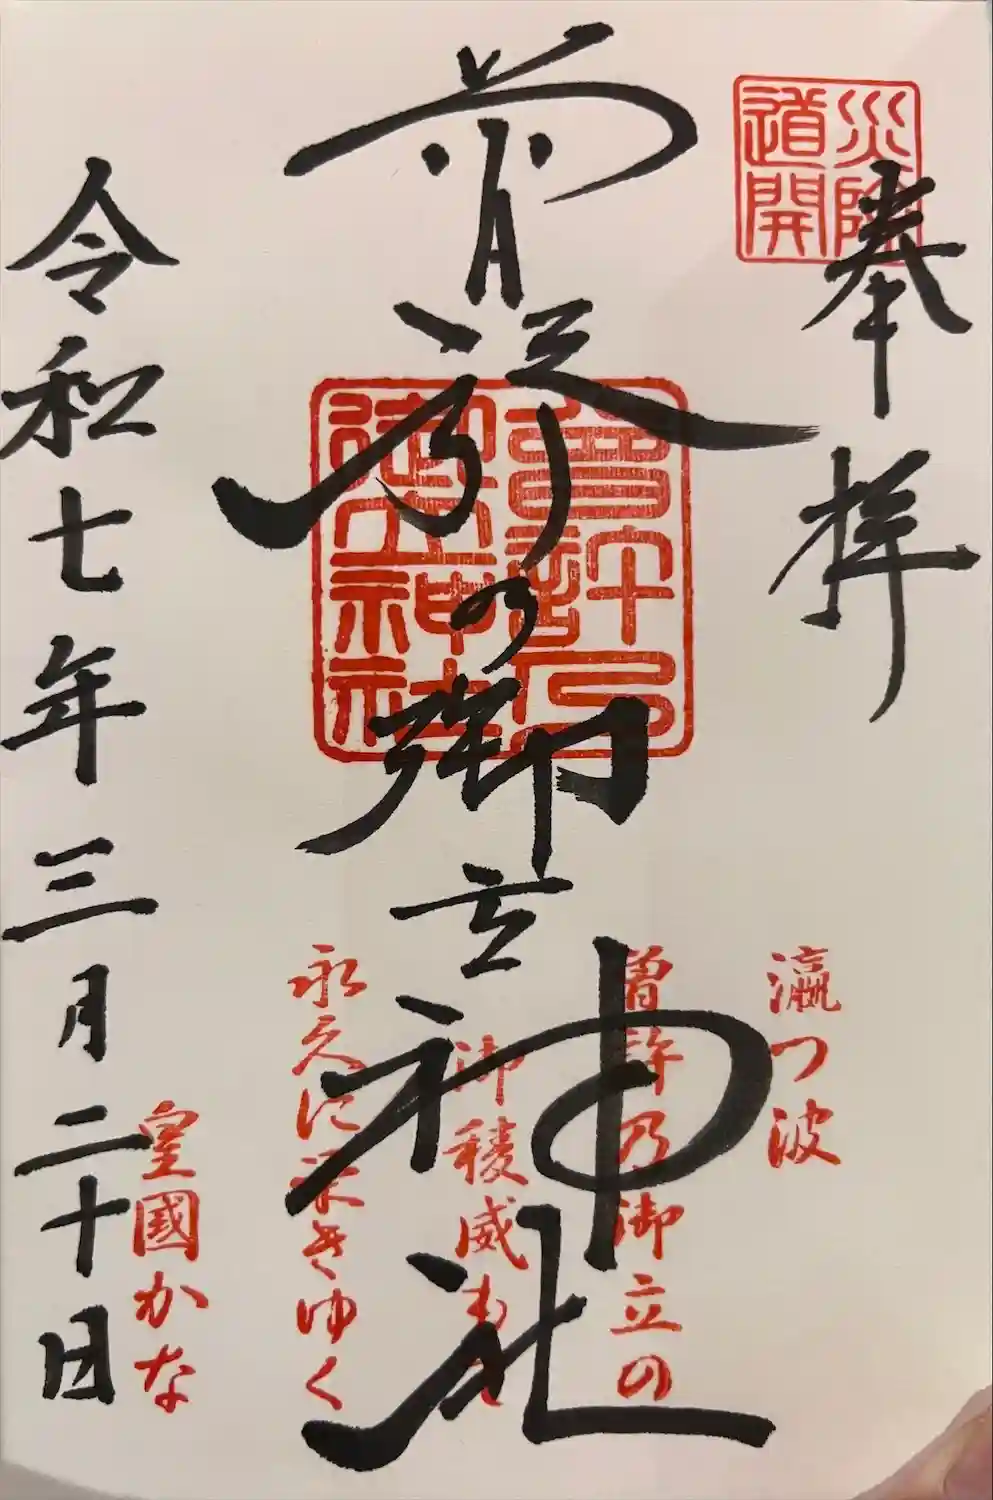 災除
道開
奉拝
曽許乃御立神社
曾許乃
御立神社
瀛つ波
曽許乃御立の
御稜威もて
永久に栄きゆく
皇國かな
令和七年三月二十日